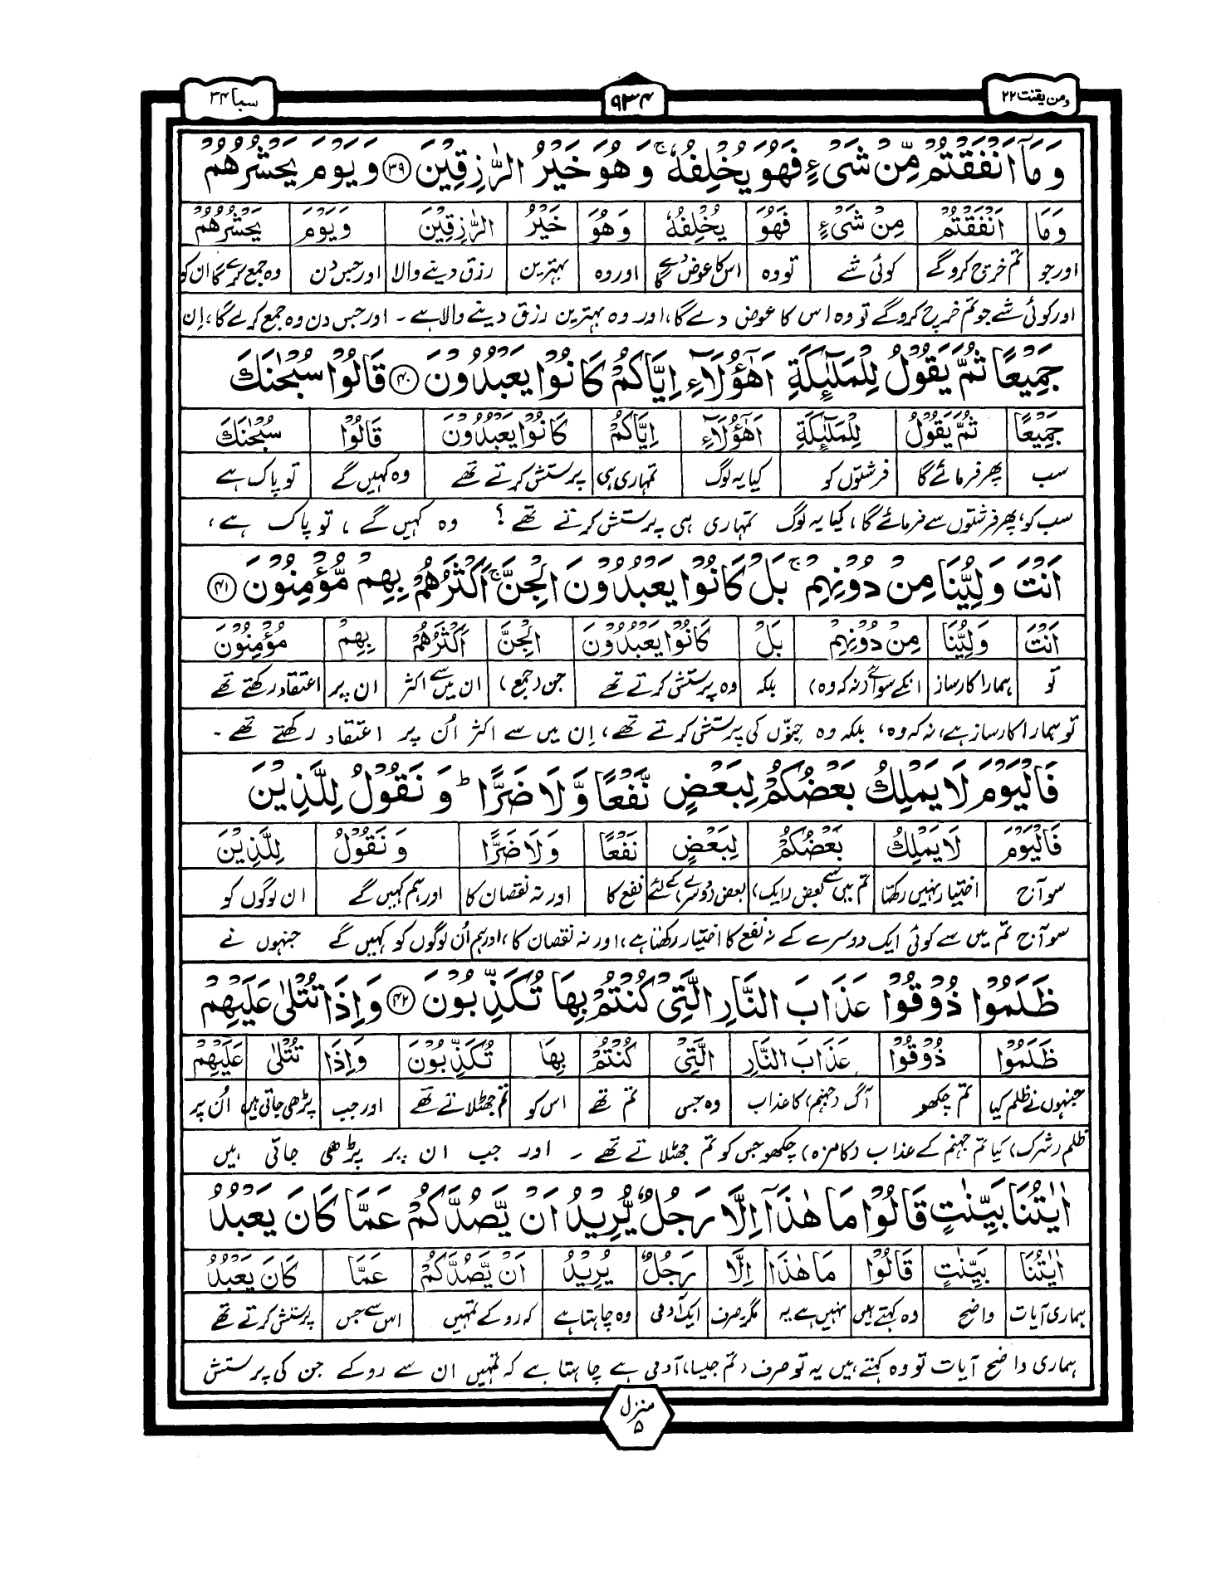 ومن یقنت ۲۲
۹۳۴
سبا ۳۴
وَمَاۤ اَنْفَقْتُمْ مِّنْ شَیْءٍ فَهُوَ یُخْلِفُهٗ ۚ وَهُوَ خَیْرُ الرّٰزِقِیْنَ ﴿۳۹﴾ وَیَوْمَ یَحْشُرُهُمْ
وَمَا اَنْفَقْتُمْ مِنْ شَیْءٍ فَهُوَ یُخْلِفُهٗ وَهُوَ خَیْرُ الرّٰزِقِیْنَ وَیَوْمَ یَحْشُرُهُمْ
اور جو تم خرچ کروگے کوئی شے تو وہ اس کا عوض دے گا اور وہ بہترین رزق دینے والا اور جس دن وہ جمع کرے گا ان کو
اور کوئی شے جو تم خرچ کروگے تو وہ اس کا عوض دے گا، اور وہ بہترین رزق دینے والا ہے ۔ اور جس دن وہ جمع کرے گا، اِن
جَمِیْعًا ثُمَّ یَقُوْلُ لِلْمَلٰٓئِكَةِ اَهٰۤؤُلَآءِ اِیَّاكُمْ كَانُوْا یَعْبُدُوْنَ ﴿۴۰﴾ قَالُوْا سُبْحٰنَكَ
جَمِیْعًا ثُمَّ یَقُوْلُ لِلْمَلٰٓئِكَةِ اَهٰٓؤُلَآءِ اِیَّاكُمْ كَانُوْا یَعْبُدُوْنَ قَالُوْا سُبْحٰنَكَ
سب پھر فرمائے گا فرشتوں کو کیا یہ لوگ تمہاری ہی پرستش کرتے تھے وہ کہیں گے تو پاک ہے
سب کو، پھر فرشتوں سے فرمائے گا، کیا یہ لوگ تمہاری ہی پرستش کرتے تھے ؟ وہ کہیں گے ، تو پاک ہے ،
اَنْتَ وَلِیُّنَا مِنْ دُوْنِهِمْ ۚ بَلْ كَانُوْا یَعْبُدُوْنَ الْجِنَّ ۚ اَكْثَرُهُمْ بِهِمْ مُّؤْمِنُوْنَ ﴿۴۱﴾
اَنْتَ وَلِیُّنَا مِنْ دُوْنِهِمْ بَلْ كَانُوْا یَعْبُدُوْنَ الْجِنَّ اَكْثَرُهُمْ بِهِمْ مُؤْمِنُوْنَ
تو ہمارا کارساز انکے سوائے (نہ کہ وہ) بلکہ وہ پرستش کرتے تھے جن (جمع) ان میں سے اکثر ان پر اعتقاد رکھتے تھے
تو ہمارا کارساز ہے، نہ کہ وہ، بلکہ وہ جنّوں کی پرستش کرتے تھے، اِن میں سے اکثر اُن پر اعتقاد رکھتے تھے ۔
فَالْیَوْمَ لَا یَمْلِكُ بَعْضُكُمْ لِبَعْضٍ نَّفْعًا وَّلَا ضَرًّا ؕ وَ نَقُوْلُ لِلَّذِیْنَ
فَالْیَوْمَ لَا یَمْلِكُ بَعْضُكُمْ لِبَعْضٍ نَفْعًا وَلَا ضَرًّا وَ نَقُوْلُ لِلَّذِیْنَ
سو آج اختیار نہیں رکھتا تم میں سے بعض (ایک) بعض (دوسرے) کے لئے نفع کا اور نہ نقصان کا اور ہم کہیں گے ان لوگوں کو
سو آج تم میں سے کوئی ایک دوسرے کے نہ نفع کا اختیار رکھتا ہے، اور نہ نقصان کا، اور ہم اُن لوگوں کو کہیں گے جنہوں نے
ظَلَمُوْا ذُوْقُوْا عَذَابَ النَّارِ الَّتِیْ كُنْتُمْ بِهَا تُكَذِّبُوْنَ ﴿۴۲﴾ وَاِذَا تُتْلٰی عَلَیْهِمْ
ظَلَمُوْا ذُوْقُوْا عَذَابَ النَّارِ الَّتِیْ كُنْتُمْ بِهَا تُكَذِّبُوْنَ وَاِذَا تُتْلٰی عَلَیْهِمْ
جنہوں نے ظلم کیا تم چکھو آگ (جہنم) کا عذاب وہ جس تم تھے اس کو تم جھٹلاتے تھے اور جب پڑھی جاتی ہیں اُن پر
ظلم (شرک) کیا تم جہنم کے عذاب (کا مزہ) چکھو جس کو تم جھٹلاتے تھے ۔ اور جب ان پر پڑھی جاتی ہیں
اٰیٰتُنَا بَیِّنٰتٍ قَالُوْا مَا هٰذَاۤ اِلَّا رَجُلٌ یُّرِیْدُ اَنْ یَّصُدَّكُمْ عَمَّا كَانَ یَعْبُدُ
اٰیٰتُنَا بَیِّنٰتٍ قَالُوْا مَا هٰذَا اِلَّا رَجُلٌ یُرِیْدُ اَنْ یَّصُدَّكُمْ عَمَّا كَانَ یَعْبُدُ
ہماری آیات واضح وہ کہتے ہیں نہیں ہے یہ مگر صرف ایک آدمی وہ چاہتا ہے کہ روکے تمہیں اس سے جس پرستش کرتے تھے
ہماری واضح آیات تو وہ کہتے ہیں یہ تو صرف (تم جیسا) آدمی ہے چاہتا ہے کہ تمہیں ان سے روکے جن کی پرستش
منزل
۵